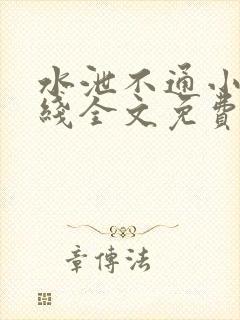 水泄不通小
线全文免費
章傳法